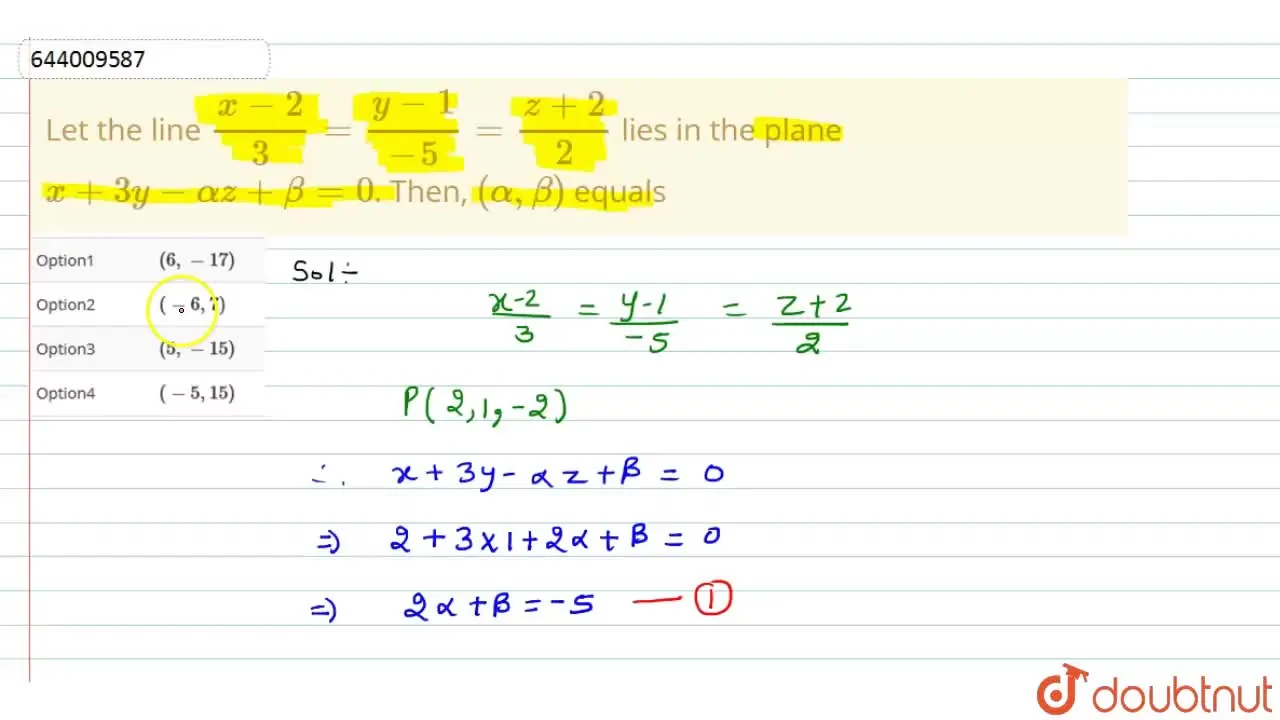 644009587
Let the line \frac{x-2}{3} = \frac{y-1}{-5} = \frac{z+2}{2} lies in the plane
x + 3y − αz + β = 0. Then, (α, β) equals
Option1 (6, −17)
Option2 (−6, 7)
Option3 (5, −15)
Option4 (−5, 15)
Sol ÷
\frac{x-2}{3} = \frac{y-1}{-5} = \frac{z+2}{2}
P(2,1,-2)
∴ x + 3y - αz + β = 0
⇒ 2 + 3×1 + 2α + β = 0
⇒ 2α + β = -5 — ①
doubtnut